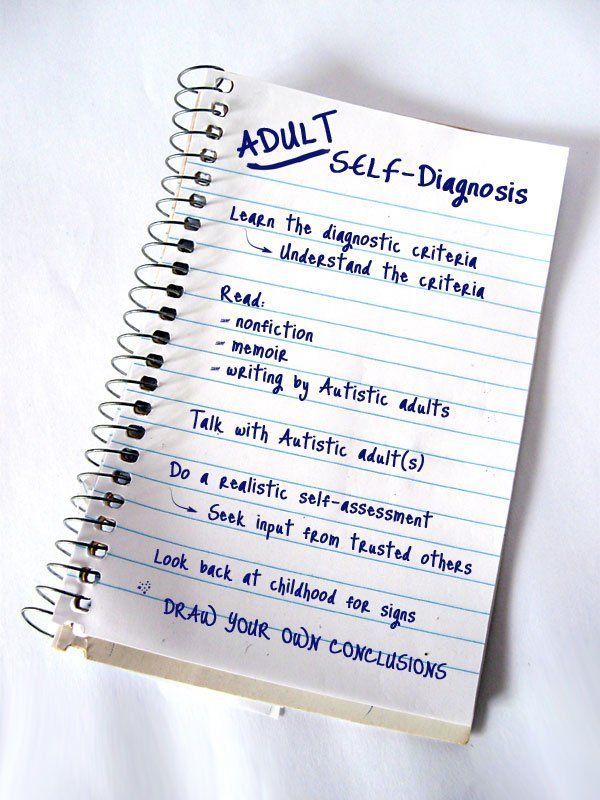 ADULT
SELF-Diagnosis
Learn the diagnostic criteria
Understand the criteria
Read:
- nonfiction
- memoir
- writing by Autistic adults
Talk with Autistic adult(s)
Do a realistic self-assessment
Seek input from trusted others
Look back at childhood for signs
DRAW YOUR OWN CONCLUSIONS